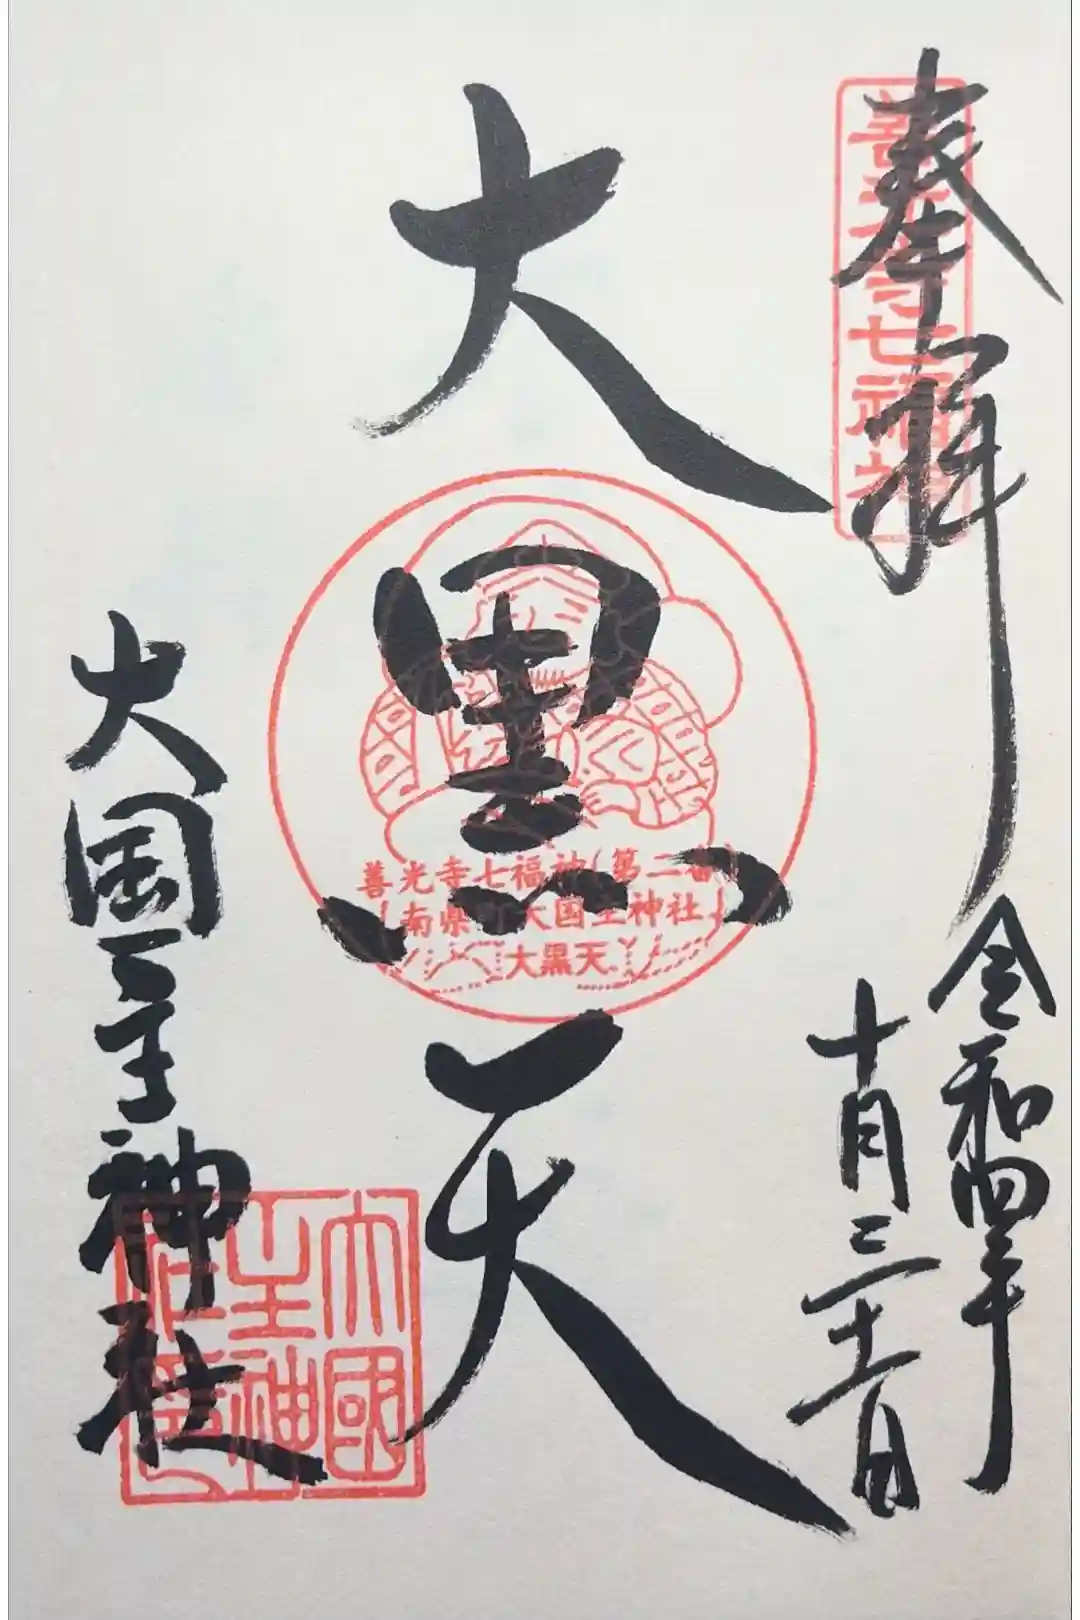 奉拝
善光寺七福神
令和四年
十月三十一日
大黒天
善光寺七福神(第二番)
(南県町大国主神社)
大黒天
大国主神社
大國
主神
社